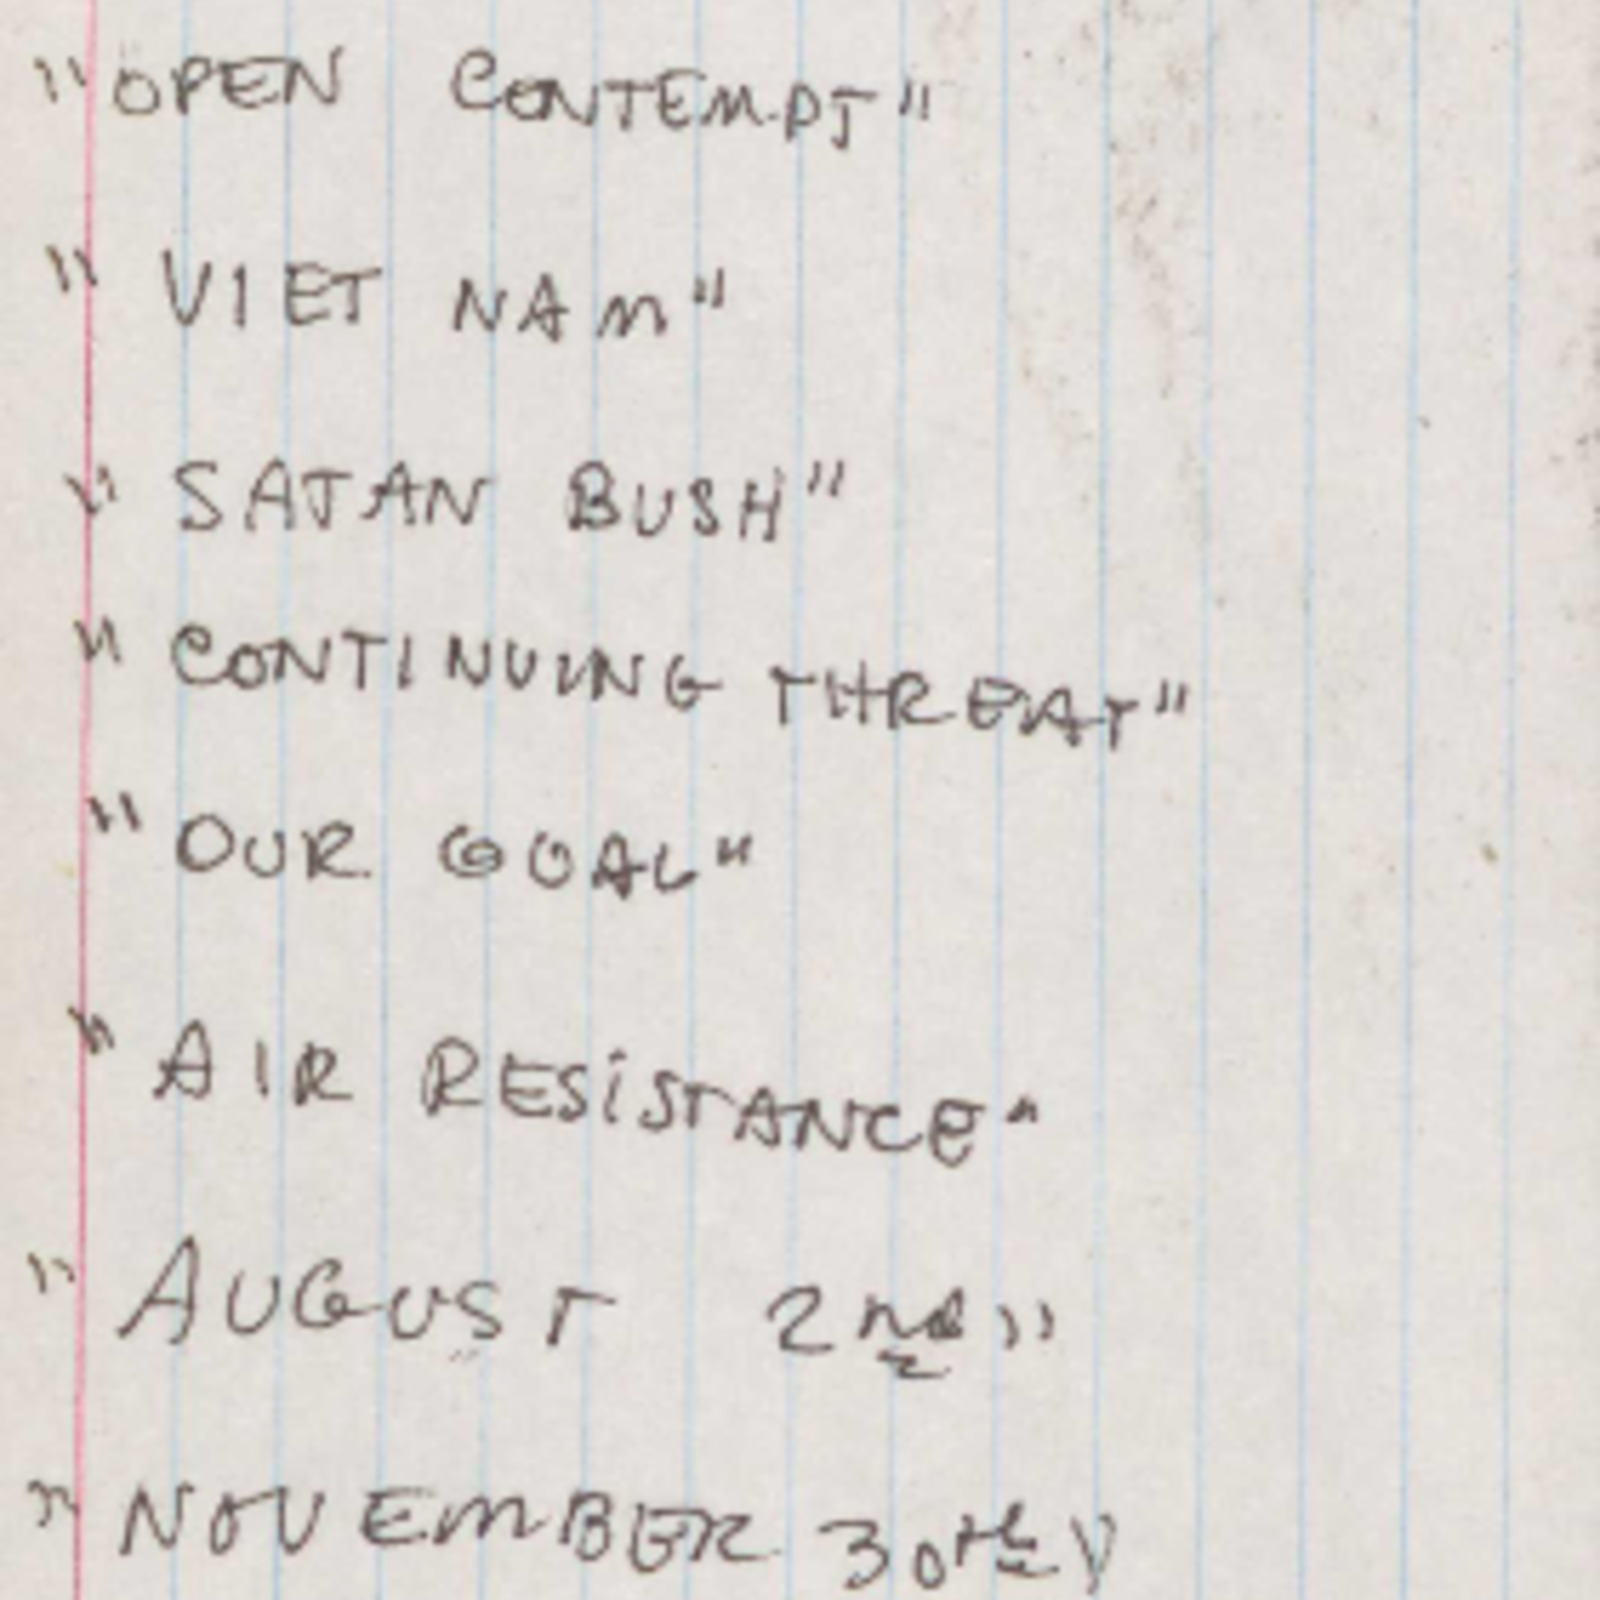 "OPEN CONTEMPT"
"VIET NAM"
"SATAN BUSH"
"CONTINUING THREAT"
"OUR GOAL"
"AIR RESISTANCE"
"AUGUST 2nd"
"NOVEMBER 30th"